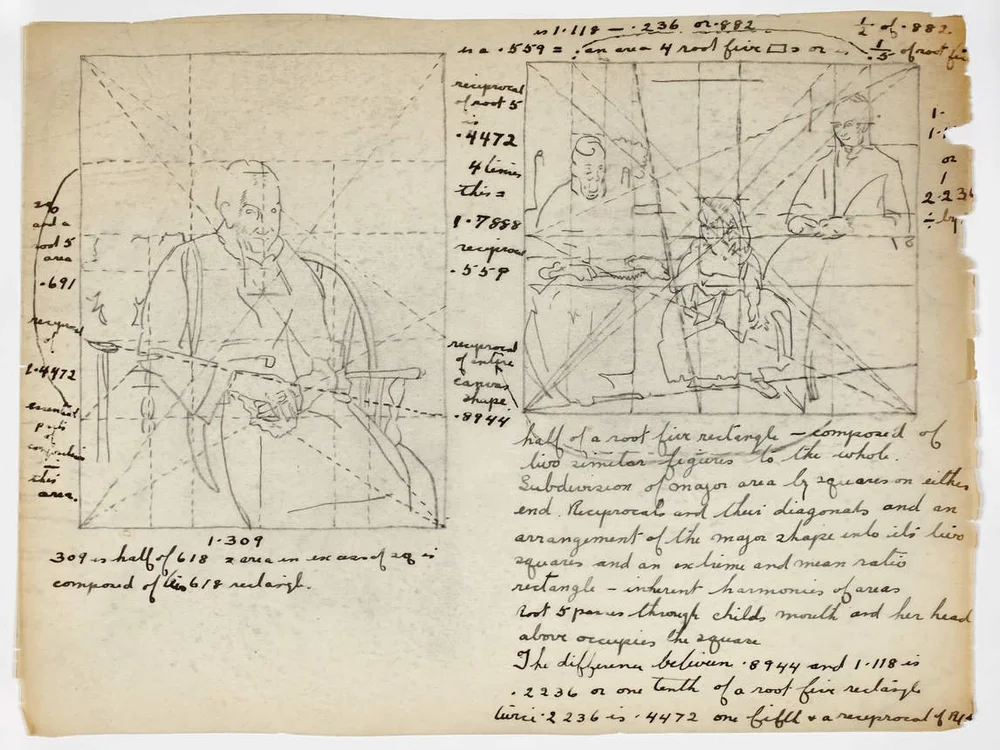 is 1.118 — .236 or .882
1/2 of .882
is a .559 = an area 4 root five □s or 1/5 of root fi
reciprocal
of root 5
is
.4472
4 times
this =
1.7888
reciprocal
.559
reciprocal
of entire
canvas
shape
.8944
1.
1.
or
1
2.236
÷ by
and a
root 5
area
.691
reciprocal
of
1.4472
essential
parts
of
composition
this
area.
1.309
309 is half of 618 area in excess of sq is
composed of this 618 rectangle.
half of a root five rectangle — composed of
two similar figures to the whole.
Subdivision of major area by squares on either
end. Reciprocals and their diagonals and an
arrangement of the major shape into its two
squares and an extreme and mean ratio
rectangle — inherent harmonies of areas
root 5 passes through childs mouth and her head
above occupies the square
The difference between .8944 and 1.118 is
.2236 or one tenth of a root five rectangle
twice .2236 is .4472 one fifth + a reciprocal of